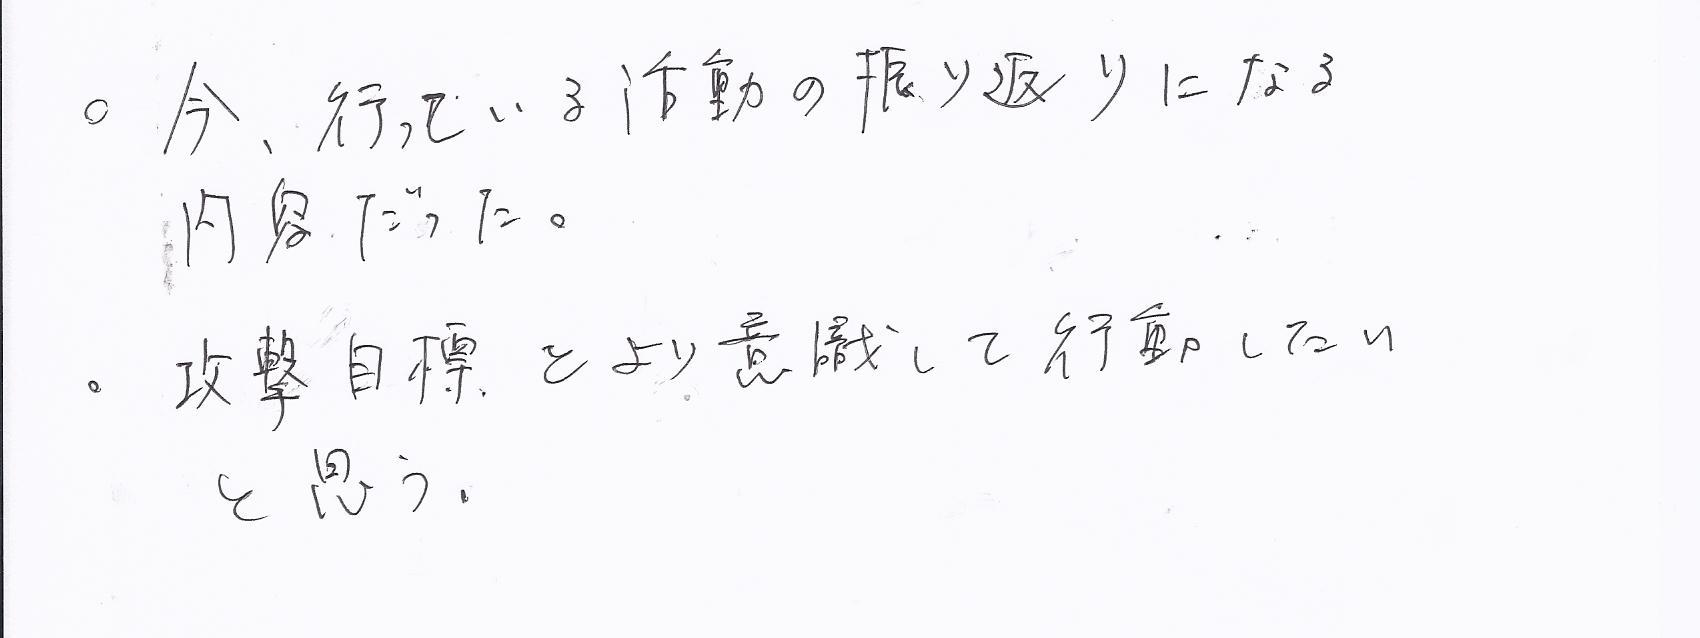 ○ 今、行っている活動の振り返りになる
内容だった。
。攻撃目標をより意識して行動したい
と思う.